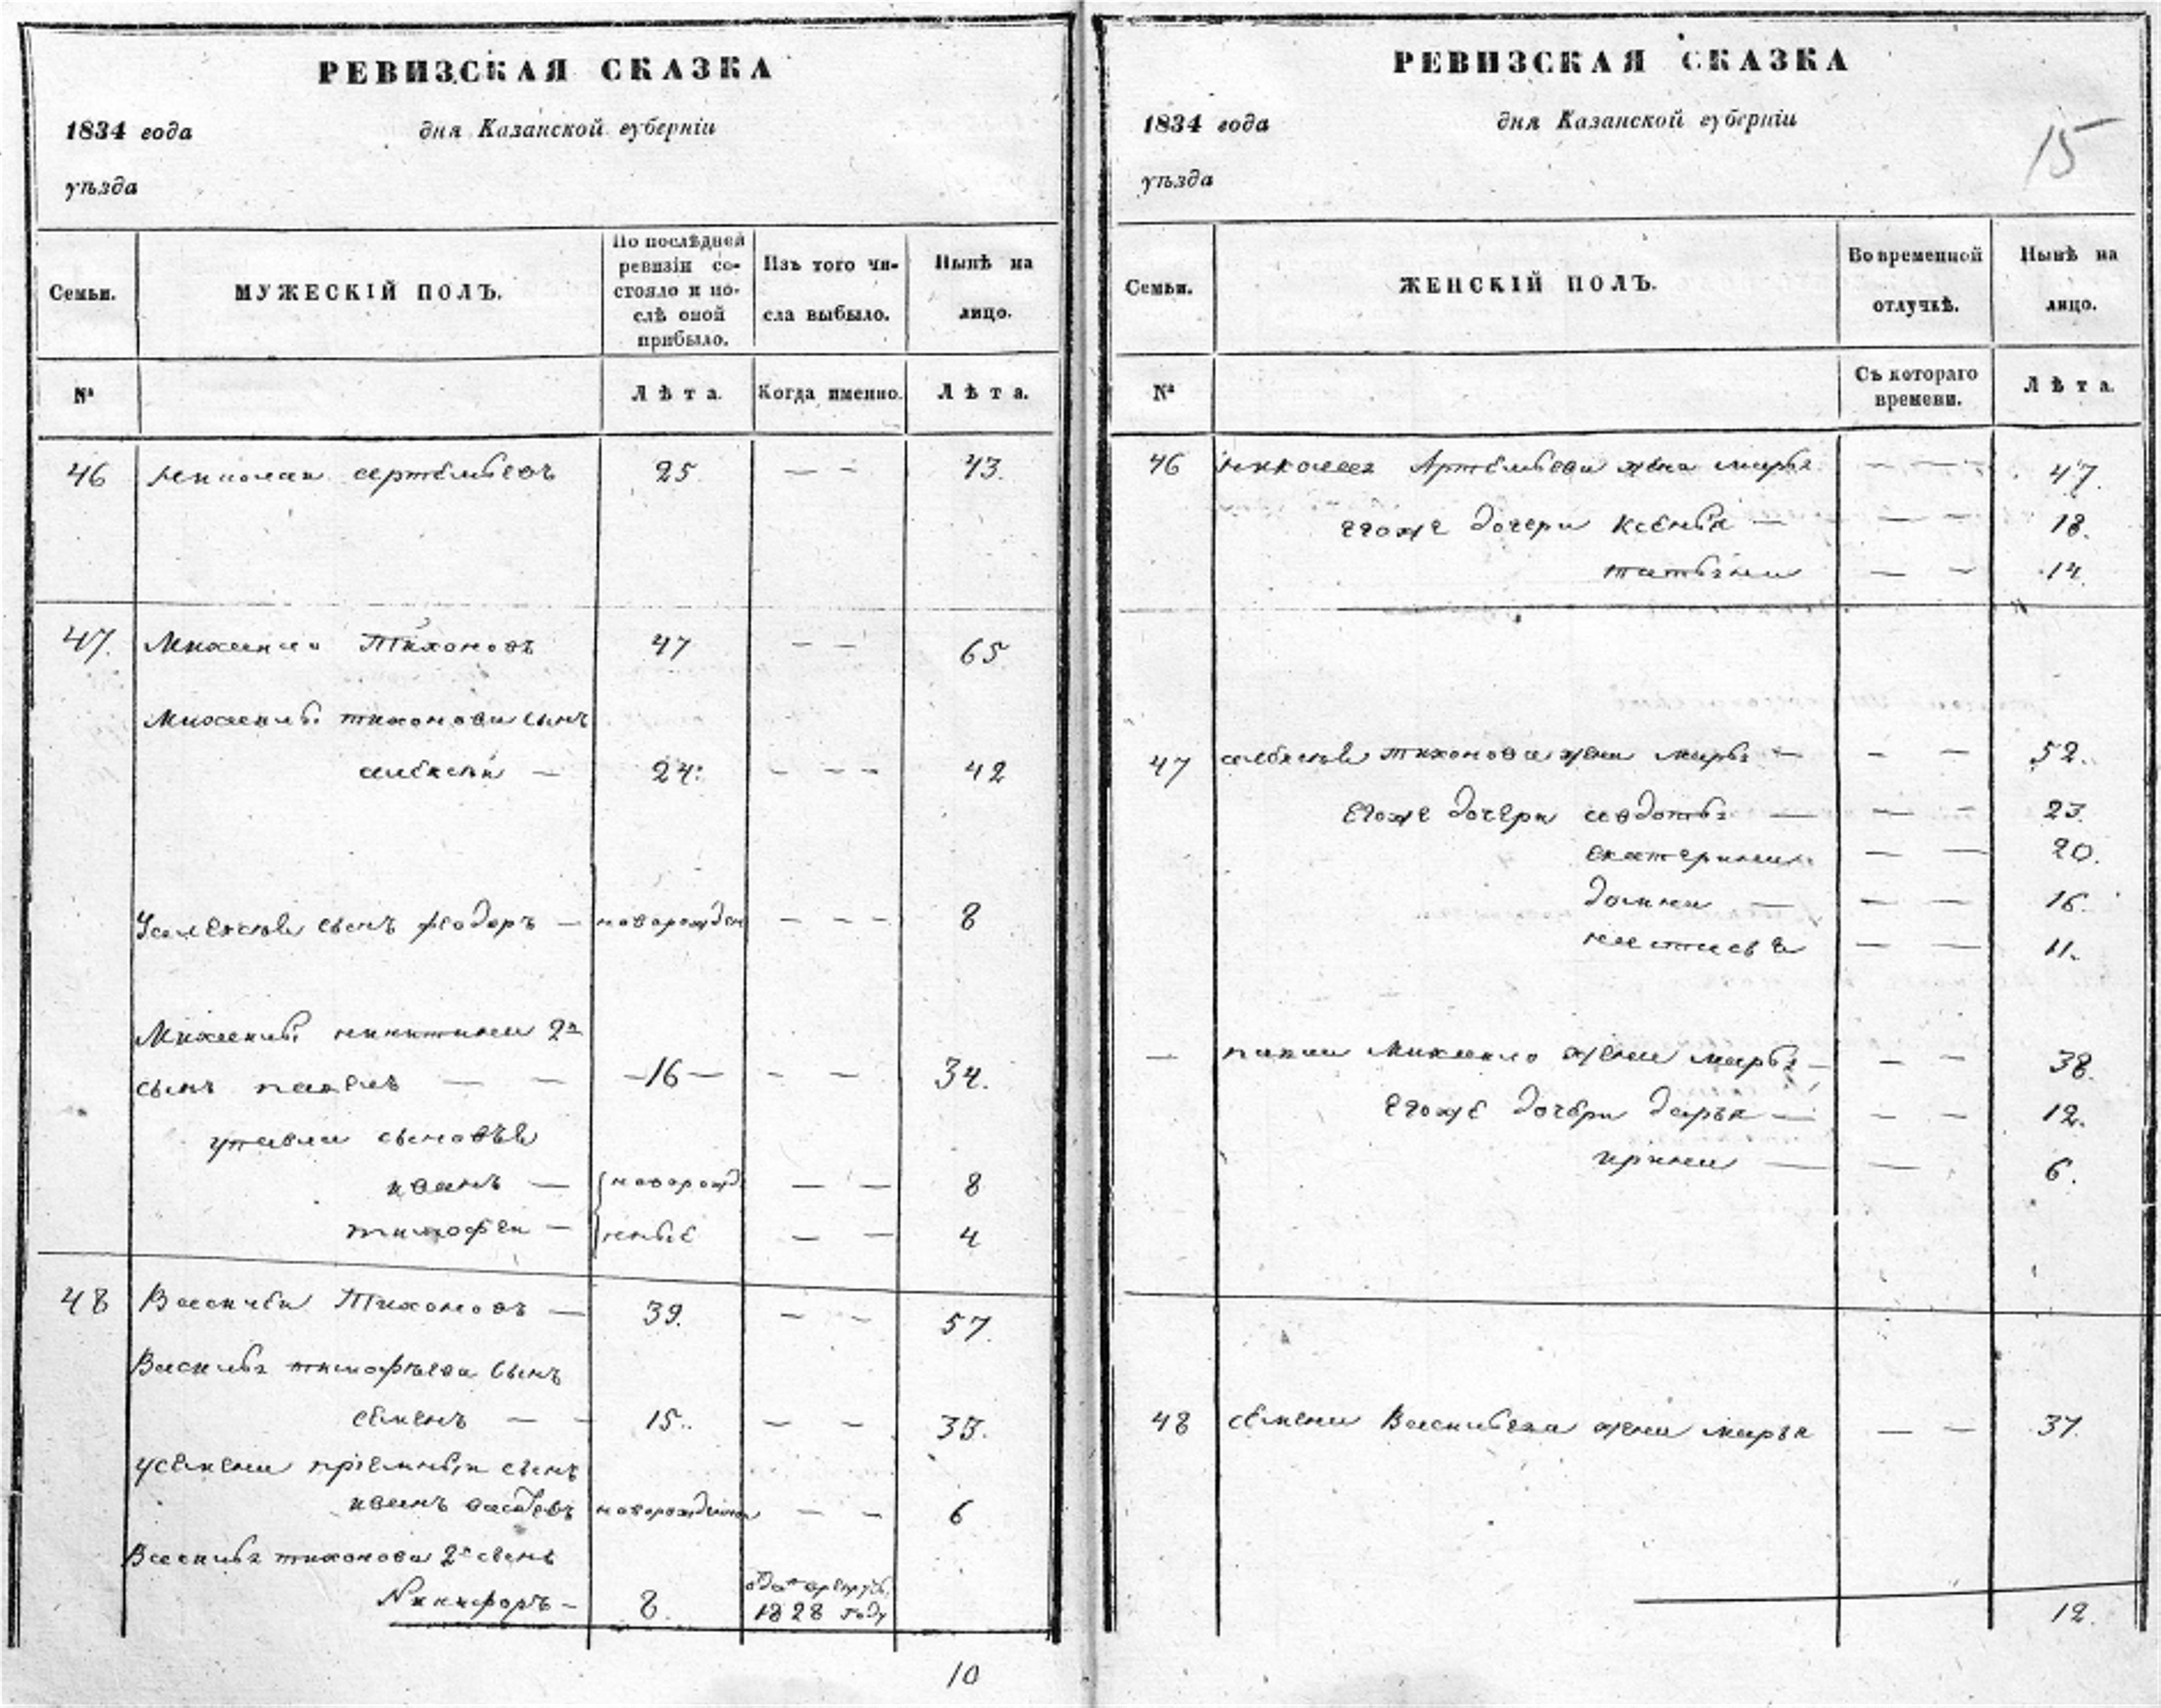 РЕВИЗСКАЯ СКАЗКА
1834 года дня Казанской губерніи
уѣзда
Семьи. МУЖЕСКІЙ ПОЛЪ. По послѣдней ревизіи со-стояло и по-слѣ оной прибыло. Изъ того чи-сла выбыло. Нынѣ на лицо.
№ Лѣта. Когда именно. Лѣта.
46 Николаи артемьевъ 25 — — 43.
47. Михаила Тихоновъ 47 — — 65
Михаила тихонова сынъ
алексѣи — 24: — — — 42
Уалексѣя сынъ федоръ — новорожден — — — 8
Михаилы никитина 2й
сынъ павелъ — — —16— — — — 34.
упавла сыновья
иванъ — новорожд — — 8
тимофеи — енные — — 4
48 Василеи Тихоновъ — 39. — — 57.
Василья тимофѣева сынъ
семенъ — — 15.. — — 33.
усемена пріемный сынъ
иванъ новорожденной — — 6
Василья тихонова 2й сынъ
Никифоръ — 8. отдан врекруты 1828 году
10
РЕВИЗСКАЯ СКАЗКА
1834 года дня Казанской губерніи
15
уѣзда
Семьи. ЖЕНСКІЙ ПОЛЪ. Во временной отлучкѣ. Нынѣ на лицо.
№ Съ котораго времени. Лѣта.
46 Николая Артемьева жена марья — — — 47.
егоже дочери Ксенья — — — 18.
татьяна — — 14.
47 алексѣя тихонова жена марья — — — 52.
Егоже дочери авдотья — — — 23.
екатерина — — 20.
домна — — — 16.
настасья — — 11.
— павла Михаила жена марья — — — 38.
егоже дочери дарья — — — 12.
ирина — — 6.
48 семена Васильева жена марья — — 37.
12.